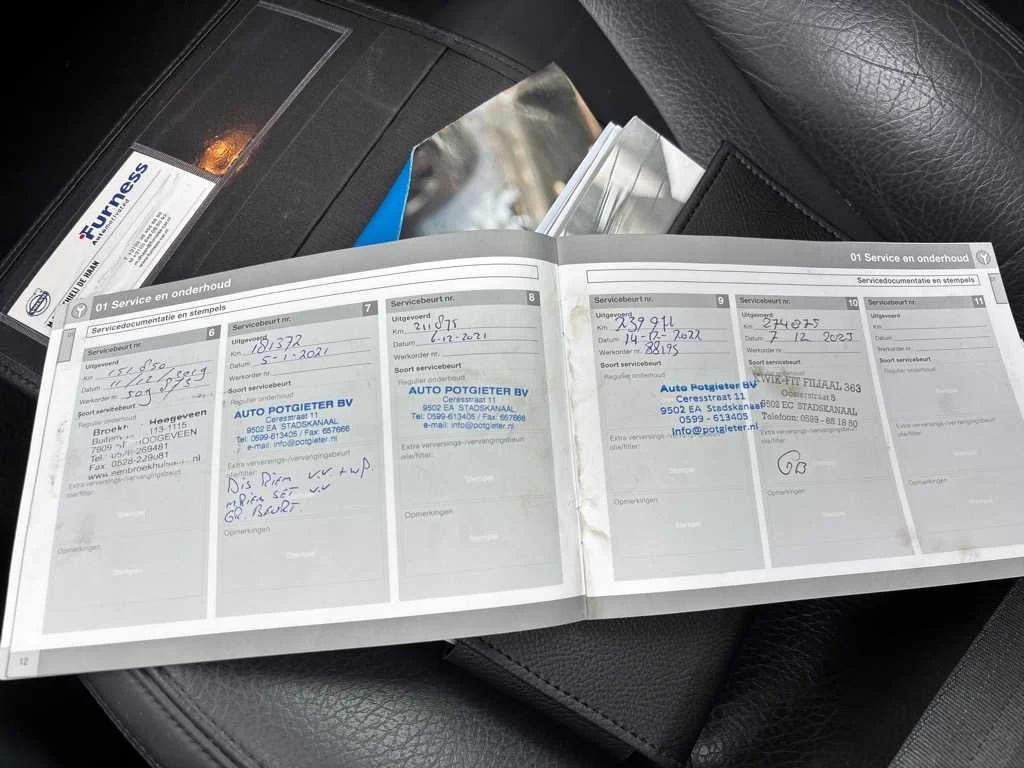 Furness
Automotivated
CHIELI DE HAAN
01 Service en onderhoud
Servicedocumentatie en stempels
Servicebeurt nr. 6
Uitgevoerd
Km 151.850
Datum 11/12/2019
Werkorder nr. 509875
Soort servicebeurt
Regulier onderhoud
Hoogeveen
113-1115
HOOGEVEEN
Fax: 0528-229081
Extra verversings-/vervangingsbeurt
olie/filter:
Stempel
Opmerkingen
Stempel
12
Servicebeurt nr. 7
Uitgevoerd
Km 181372
Datum 5-1-2021
Werkorder nr.
Soort servicebeurt
Regulier onderhoud
AUTO POTGIETER BV
Ceresstraat 11
9502 EA STADSKANAAL
Tel: 0599-613405 / Fax: 657666
e-mail: info@potgieter.nl
Extra verversings-/vervangingsbeurt
olie/filter:
DIS RIEM V.V + WP.
MRIEM SET V.V
GR. BEURT.
Opmerkingen
Stempel
Servicebeurt nr. 8
Uitgevoerd
Km 211875
Datum 6-12-2021
Werkorder nr.
Soort servicebeurt
Regulier onderhoud
AUTO POTGIETER BV
Ceresstraat 11
9502 EA STADSKANAAL
Tel: 0599-613405 / Fax: 657666
e-mail: info@potgieter.nl
Extra verversings-/vervangingsbeurt
olie/filter:
Stempel
Opmerkingen
Stempel
01 Service en onderhoud
Servicedocumentatie en stempels
Servicebeurt nr. 9
Uitgevoerd
Km 239971
Datum 14-12-2022
Werkorder nr. 88195
Soort servicebeurt
Regulier onderhoud
Auto Potgieter BV
Ceresstraat 11
9502 EA Stadskanaal
0599 - 613405
Info@potgieter.nl
Extra verversings-/vervangingsbeurt
olie/filter:
Stempel
Opmerkingen
Stempel
Servicebeurt nr. 10
Uitgevoerd
Km 274075
Datum 7 12 2023
Werkorder nr.
Soort servicebeurt
KWIK-FIT FILIAAL 363
Oosterstraat 8
9502 EC STADSKANAAL
Telefoon: 0599 - 65 18 50
Extra verversings-/vervangingsbeurt
olie/filter:
GB
Opmerkingen
Stempel
Servicebeurt nr. 11
Uitgevoerd
Km
Datum
Werkorder nr.
Soort servicebeurt
Regulier onderhoud
Extra verversings-/vervangingsbeurt
olie/filter:
Stempel
Opmerkingen
Stempel